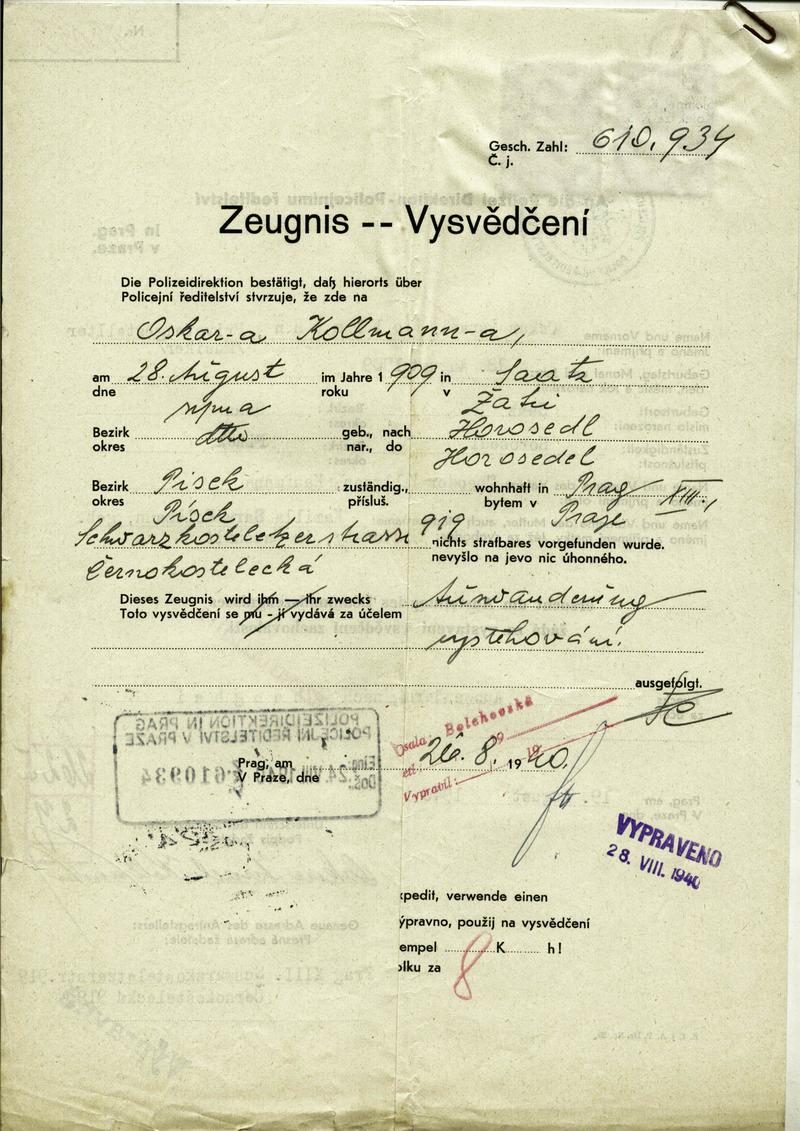 Gesch. Zahl: 610.934
Č. j.
Zeugnis -- Vysvědčení
Die Polizeidirektion bestätigt, daß hierorts über
Policejní ředitelství stvrzuje, že zde na
Oskar-a Kollmann-a,
am 28. August im Jahre 1909 in Saatz
dne srpna roku v Žatci
Bezirk dtto geb., nach Horosedl
okres nar., do Horosedel
Bezirk Pisek zuständig., wohnhaft in Prag XIII.,
okres Písek přísluš. bytem v Praze
Schwarzkosteletzerstrasse 919 nichts strafbares vorgefunden wurde.
Černokostelecká nevyšlo na jevo nic úhonného.
Dieses Zeugnis wird ihm — ihr zwecks Auswanderung
Toto vysvědčení se mu - jí vydává za účelem vystěhování.
ausgefolgt.
POLIZEIDIREKTION IN PRAG
POLICEJNÍ ŘEDITELSTVÍ V PRAZE
Eing. 24. VIII. 1940
Doš.
610934
Psala Bolehovská
Prag, am 26. 8. 1940.
V Praze, dne
Vypravil:
VYPRAVENO
28. VIII. 1940
xpedit, verwende einen
ýpravno, použij na vysvědčení
empel 8 K h!
olku za